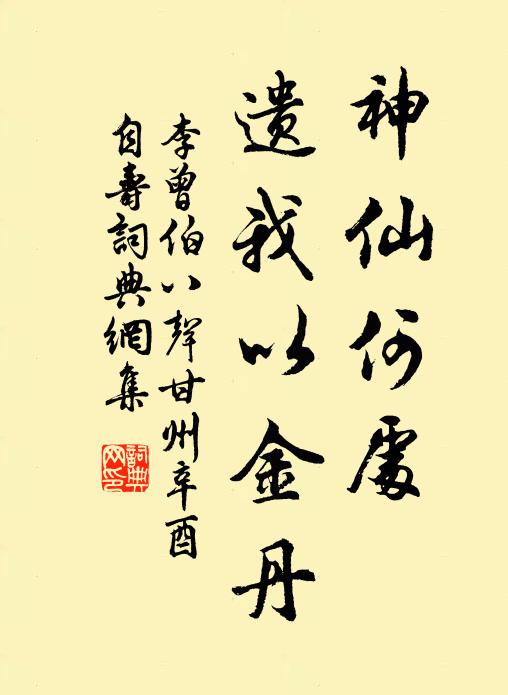 神仙何處
遺我以金丹
李曾伯八聲甘州辛酉
自壽詞典網集
詞典
网印